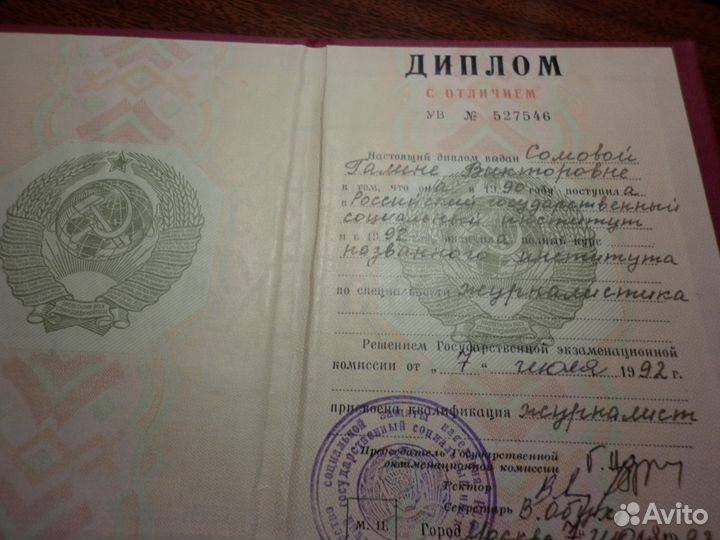 ДИПЛОМ
С ОТЛИЧИЕМ
УВ № 527546
Настоящий диплом выдан Сомовой
Галине Викторовне
в том, что она в 1990 году поступила
в Российский государственный
социальный институт
и в 1992 окончила полный курс
названного института
по специальности журналистика
Решением Государственной экзаменационной
комиссии от „7“ июля 1992 г.
присвоена квалификация журналист
Председатель Государственной
экзаменационной комиссии
Ректор
Секретарь
М. П.
Город Москва 7 июля 92
социальной защиты населения
государственный социальный
Avito